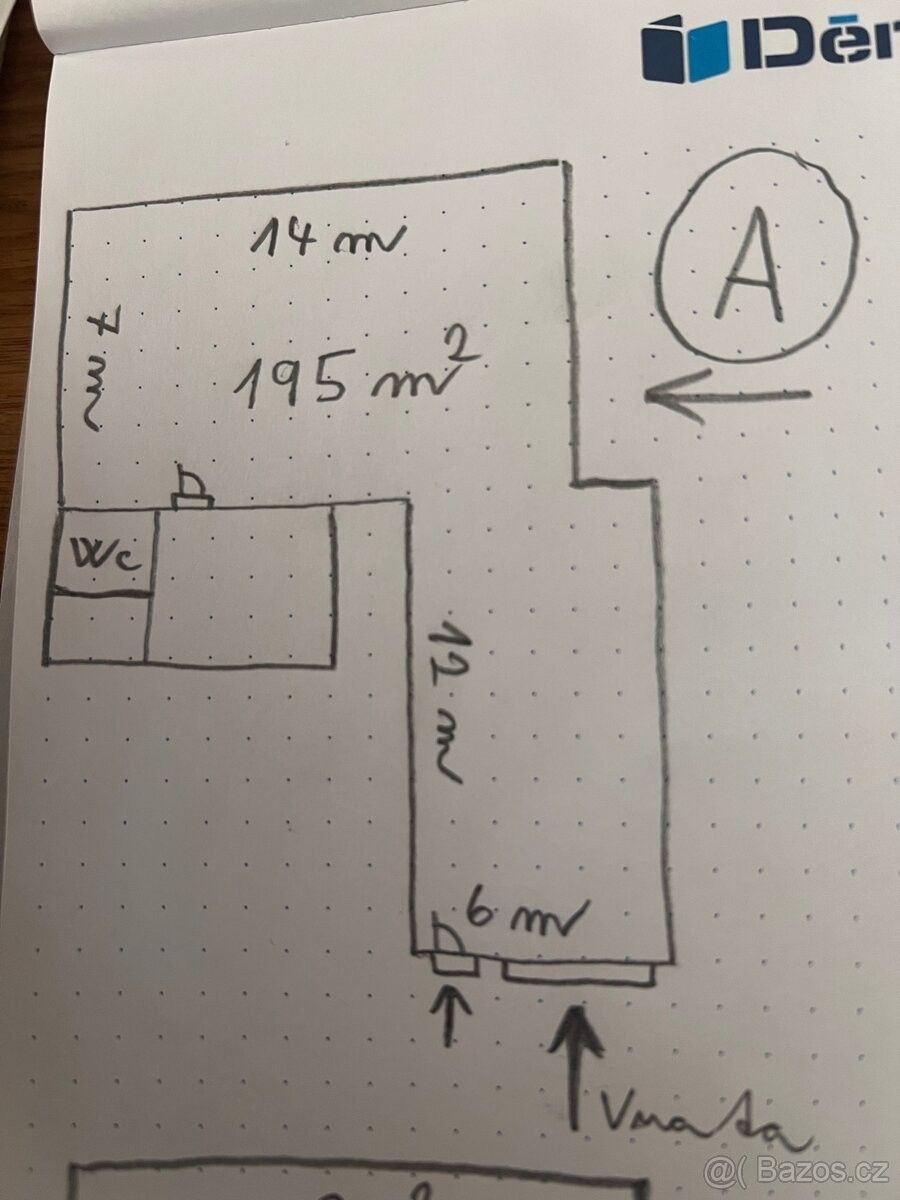 Děr
14 m
A
7 m
195 m²
Wc
12 m
6 m
Vrata
@( Bazos.cz